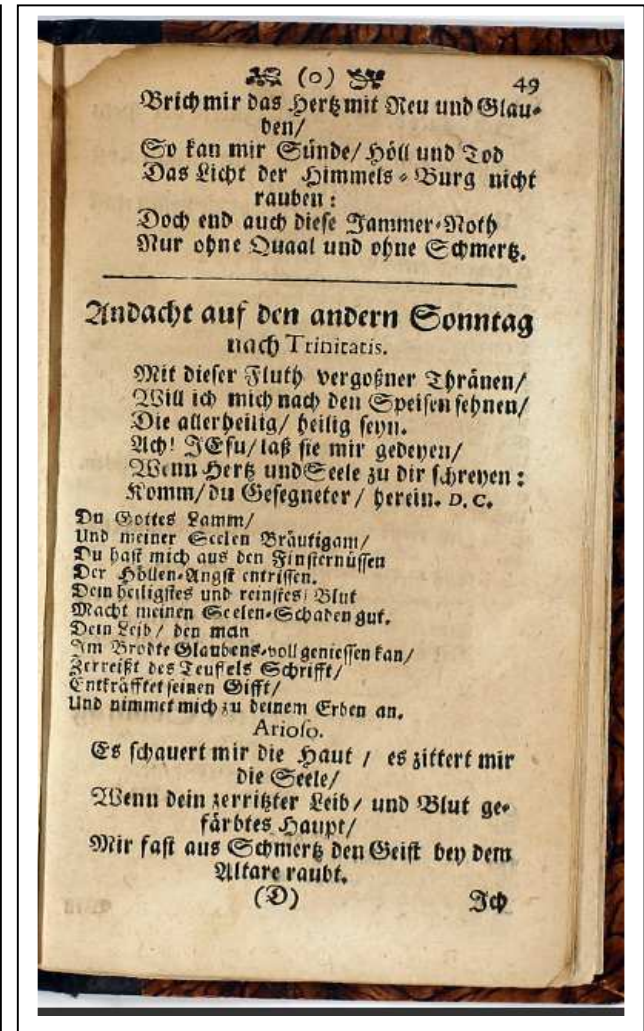 (0) 49
Brich mir das Hertz mit Reu und Glau-
ben/
So kan mir Sünde/ Höll und Tod
Das Licht der Himmels-Burg nicht
rauben:
Doch end auch diese Jammer-Noth
Nur ohne Quaal und ohne Schmertz.
Andacht auf den andern Sonntag
nach Trinitatis.
Mit dieser Fluth vergoßner Thränen/
Will ich mich nach den Speisen sehnen/
Die allerheilig/ heilig seyn.
Ach! JEsu/ laß sie mir gedeyen/
Wenn Hertz und Seele zu dir schreyen:
Komm/ du Gesegneter/ herein. D. C.
Du Gottes Lamm/
Und meiner Seelen Bräutigam/
Du hast mich aus den Finsternüssen
Der Höllen-Angst entrissen.
Dein heiligstes und reinstes Blut
Macht meinen Seelen-Schaden gut.
Dein Leib/ den man
Im Brodte Glaubens-voll geniessen kan/
Zerreißt des Teuffels Schrifft/
Entkräfftet seinen Gifft/
Und nimmet mich zu deinem Erben an.
Arioso.
Es schauert mir die Haut/ es zittert mir
die Seele/
Wenn dein zerritzter Leib/ und Blut ge-
färbtes Haupt/
Mir fast aus Schmertz den Geist bey dem
Altare raubt.
(D) Ich